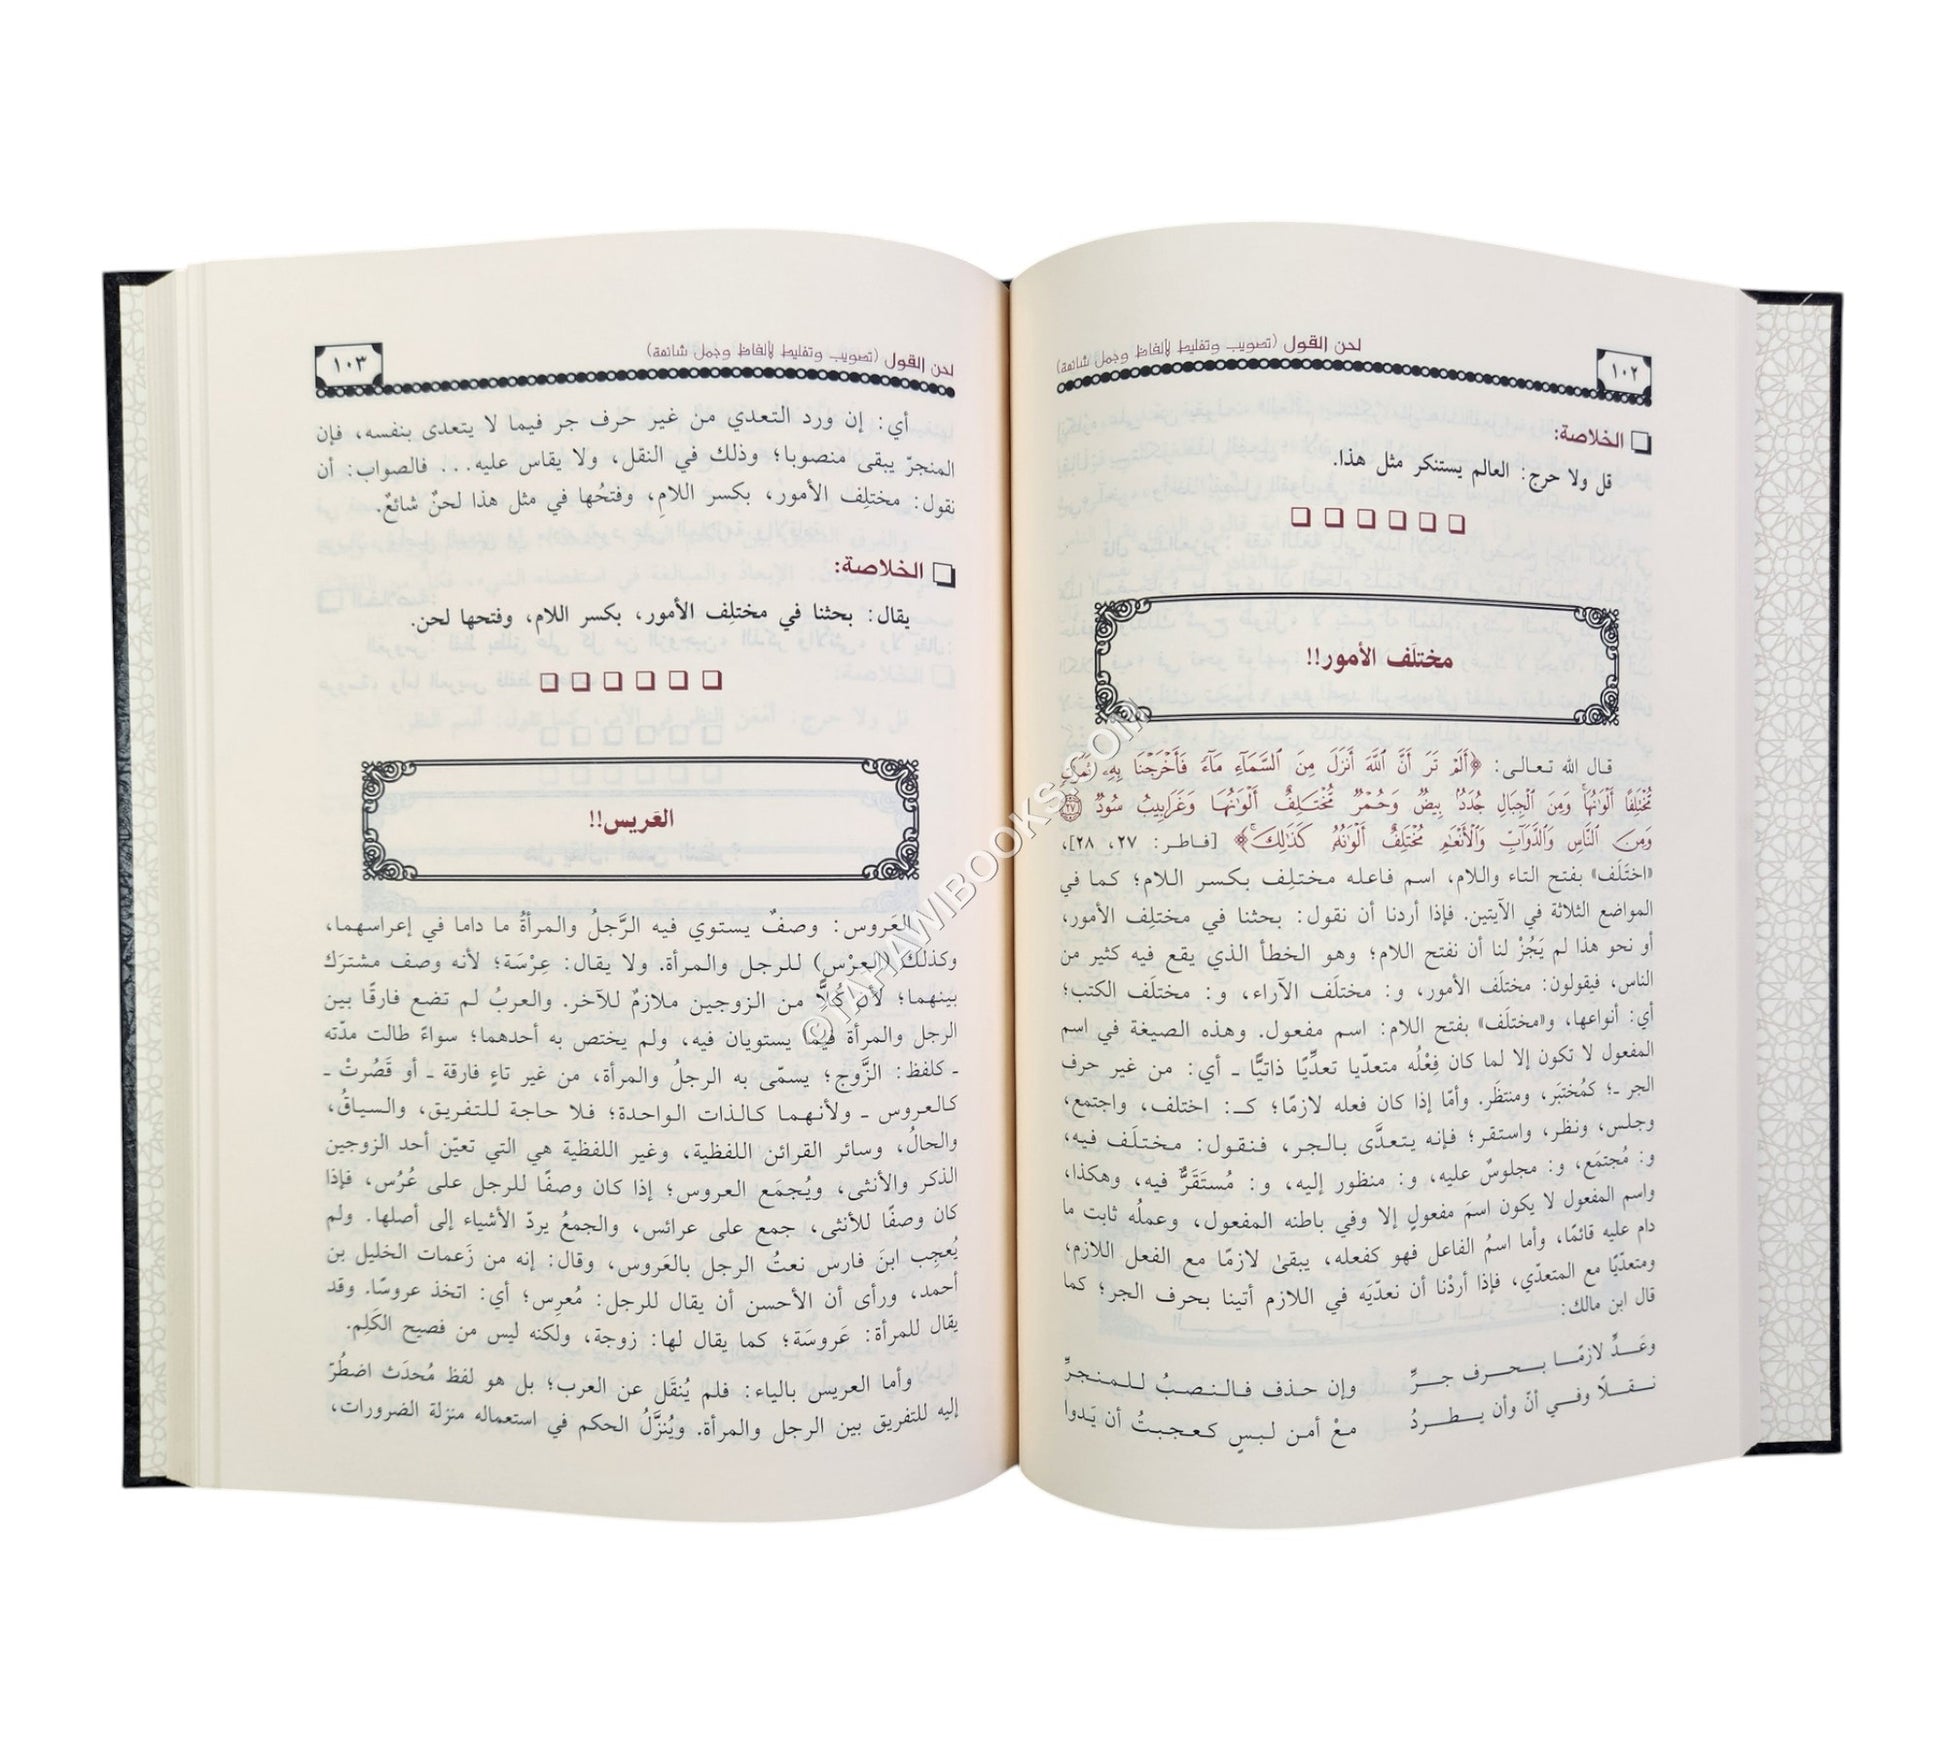 ١٠٢
لحن القول (تصويب وتغليط لألفاظ وجمل شائعة)
الخلاصة:
قل ولا حرج: العالم يستنكر مثل هذا.
مختلَف الأمور!!
قال الله تعالى: ﴿أَلَمْ تَرَ أَنَّ ٱللَّهَ أَنزَلَ مِنَ ٱلسَّمَآءِ مَآءً فَأَخْرَجْنَا بِهِۦ ثَمَرَٰتٍ
مُّخْتَلِفًا أَلْوَٰنُهَا ۚ وَمِنَ ٱلْجِبَالِ جُدَدٌۢ بِيضٌ وَحُمْرٌ مُّخْتَلِفٌ أَلْوَٰنُهَا وَغَرَابِيبُ سُودٌ ٢٧
وَمِنَ ٱلنَّاسِ وَٱلدَّوَآبِّ وَٱلْأَنْعَٰمِ مُخْتَلِفٌ أَلْوَٰنُهُۥ كَذَٰلِكَ ۗ﴾ [فاطر: ٢٧، ٢٨]،
«اختَلَف» بفتح التاء واللام، اسم فاعله مختلِف بكسر اللام؛ كما في
المواضع الثلاثة في الآيتين. فإذا أردنا أن نقول: بحثنا في مختلِف الأمور،
أو نحو هذا لم يَجُزْ لنا أن نفتح اللام؛ وهو الخطأ الذي يقع فيه كثير من
الناس، فيقولون: مختلَف الأمور، و: مختلَف الآراء، و: مختلَف الكتب؛
أي: أنواعها، و«مختلَف» بفتح اللام: اسم مفعول. وهذه الصيغة في اسم
المفعول لا تكون إلا لما كان فِعْلُه متعديا تعدِّيًا ذاتيًّا ـ أي: من غير حرف
الجر ـ؛ كمُختبَر، ومنتظَر. وأمّا إذا كان فعله لازمًا؛ كـ: اختلف، واجتمع،
وجلس، ونظر، واستقر؛ فإنه يتعدَّى بالجر، فنقول: مختلَف فيه،
و: مُجتمَع، و: مجلوسٌ عليه، و: منظور إليه، و: مُستَقَرٌّ فيه، وهكذا،
واسم المفعول لا يكون اسمَ مفعولٍ إلا وفي باطنه المفعول، وعملُه ثابت ما
دام عليه قائمًا، وأما اسمُ الفاعل فهو كفعله، يبقىٰ لازمًا مع الفعل اللازم،
ومتعدّيًا مع المتعدّي، فإذا أردْنا أن نعدّيَه في اللازم أتينا بحرف الجر؛ كما
قال ابن مالك:
وعَـدِّ لازمًـا بـحـرف جـرِّ وإن حذف فـالـنـصبُ لـلـمنجرِّ
نـقـلًا وفـي أنّ وأن يـطـردُ معْ أمـن لـبـسٍ كـعـجبتُ أن يَدوا
لحن القول (تصويب وتغليط لألفاظ وجمل شائعة)
١٠٣
أي: إن ورد التعدي من غير حرف جر فيما لا يتعدى بنفسه، فإن
المنجرّ يبقى منصوبا؛ وذلك في النقل، ولا يقاس عليه... فالصواب: أن
نقول: مختلِف الأمور، بكسر اللامِ، وفتحُها في مثل هذا لحنٌ شائعٌ.
الخلاصة:
يقال: بحثنا في مختلِف الأمور، بكسر اللام، وفتحها لحن.
العَريس!!
العَروس: وصفٌ يستوي فيه الرَّجلُ والمرأةُ ما داما في إعراسهما،
وكذلك (العِرْس) للرجل والمرأة. ولا يقال: عِرْسَة؛ لأنه وصف مشترَك
بينهما؛ لأن كُلًّا من الزوجين ملازمٌ للآخر. والعربُ لم تضع فارقًا بين
الرجل والمرأة فيما يستويان فيه، ولم يختص به أحدهما؛ سواءً طالت مدّته
ـ كلفظ: الزَّوج؛ يسمّى به الرجلُ والمرأة، من غير تاءٍ فارقة ـ أو قَصُرتْ ـ
كالعروس ـ ولأنهما كالذات الواحدة؛ فلا حاجة للتفريق، والسياقُ،
والحالُ، وسائر القرائن اللفظية، وغير اللفظية هي التي تعيّن أحد الزوجين
الذكر والأنثى، ويُجمَع العروس؛ إذا كان وصفًا للرجل على عُرُس، فإذا
كان وصفًا للأنثى، جمع على عرائس، والجمعُ يردّ الأشياء إلى أصلها. ولم
يُعجِب ابنَ فارس نعتُ الرجل بالعَروس، وقال: إنه من زَعمات الخليل بن
أحمد، ورأى أن الأحسن أن يقال للرجل: مُعرِس؛ أي: اتخذ عروسًا. وقد
يقال للمرأة: عَروسَة؛ كما يقال لها: زوجة، ولكنه ليس من فصيح الكَلِم.
وأما العريس بالياء: فلم يُنقَل عن العرب؛ بل هو لفظ مُحدَث اضطُرّ
إليه للتفريق بين الرجل والمرأة. ويُنزَّلُ الحكم في استعماله منزلة الضرورات،